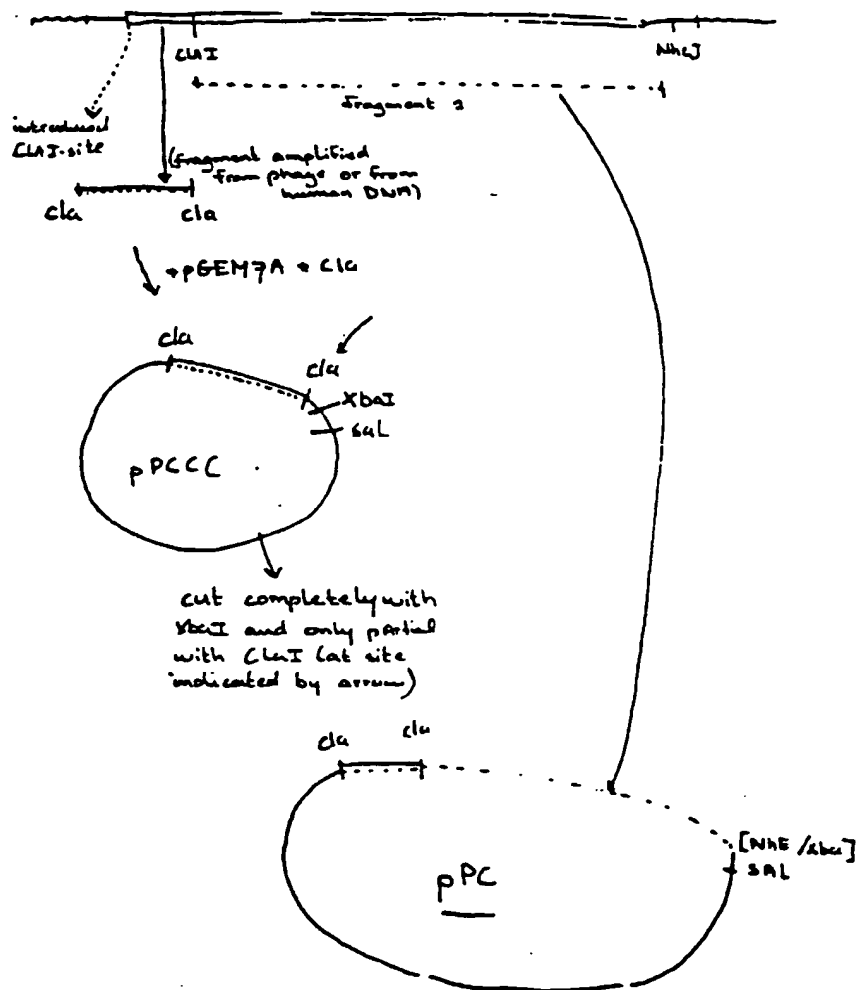 ClaI
NheI
fragment 2
introduced
ClAI-site
(fragment amplified
from phage or from
human DNA)
cla
cla
+pGEM7A * Cla
cla
cla
XbaI
saL
pPCCC
cut completely with
XbaI and only partial
with ClaI (at site
indicated by arrow)
cla
cla
[NhE/xba]
SAL
pPC